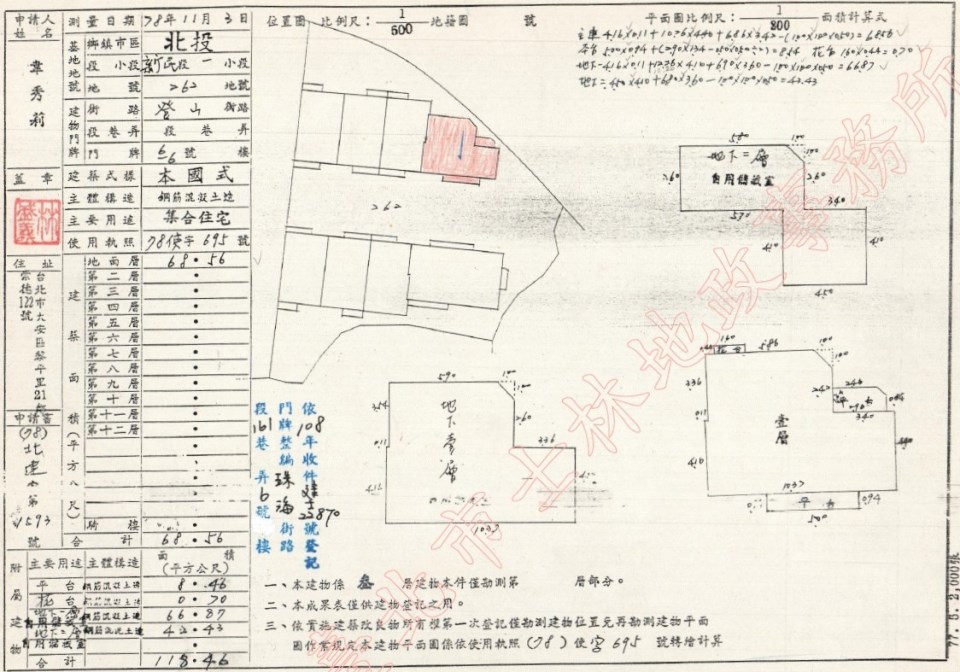 申請人姓名
韋秀莉
蓋章
住址
台北市大安區黎平里21鄰
崇德街122號
申請書
(78)北建字第
1593
號
測量日期 78年11月3日
基地地號
鄉鎮市區 北投
段 小段 新民段 一 小段
地號 262 地號
建物門牌
街路 登山 街路
段巷弄 段巷弄
門牌 6-6號 樓
建築式樣 本國式
主體構造 鋼筋混凝土造
主要用途 集合住宅
使用執照 78使字695號
建築面積(平方公尺)
地面層 68.56
第二層
第三層
第四層
第五層
第六層
第七層
第八層
第九層
第十層
第十一層
第十二層
騎樓
合計 68.56
附屬建物
主要用途 主體構造 面積(平方公尺)
平台 鋼筋混凝土造 8.46
花台 鋼筋混凝土造 0.70
鋼筋混凝土造 66.87
地下二層 鋼筋混凝土造 43.43
自用儲藏室
合計 118.46
位置圖 比例尺:1/500 地籍圖 號
平面圖比例尺:1/300 面積計算式
262
地下二層
自用儲藏室
580
100
100
260
260
340
570
410
410
450
地下壹層
590
100
100
260
336
1037
壹層
160
花台
586
100
100
336
242
340
平台
094
410
1037
平台
094
500
依108年收件建字22870號登記
門牌整編珠海街路
段161巷弄6號樓
一、本建物係 叁 層建物本件僅勘測第 層部分。
二、本成果表僅供建物登記之用。
三、依實施建築改良物所有權第一次登記僅勘測建物位置免再勘測建物平面
圖作業規定本建物平面圖係依使用執照(78)使字695號轉繪計算
臺北市士林地政事務所
77.5.2,000張